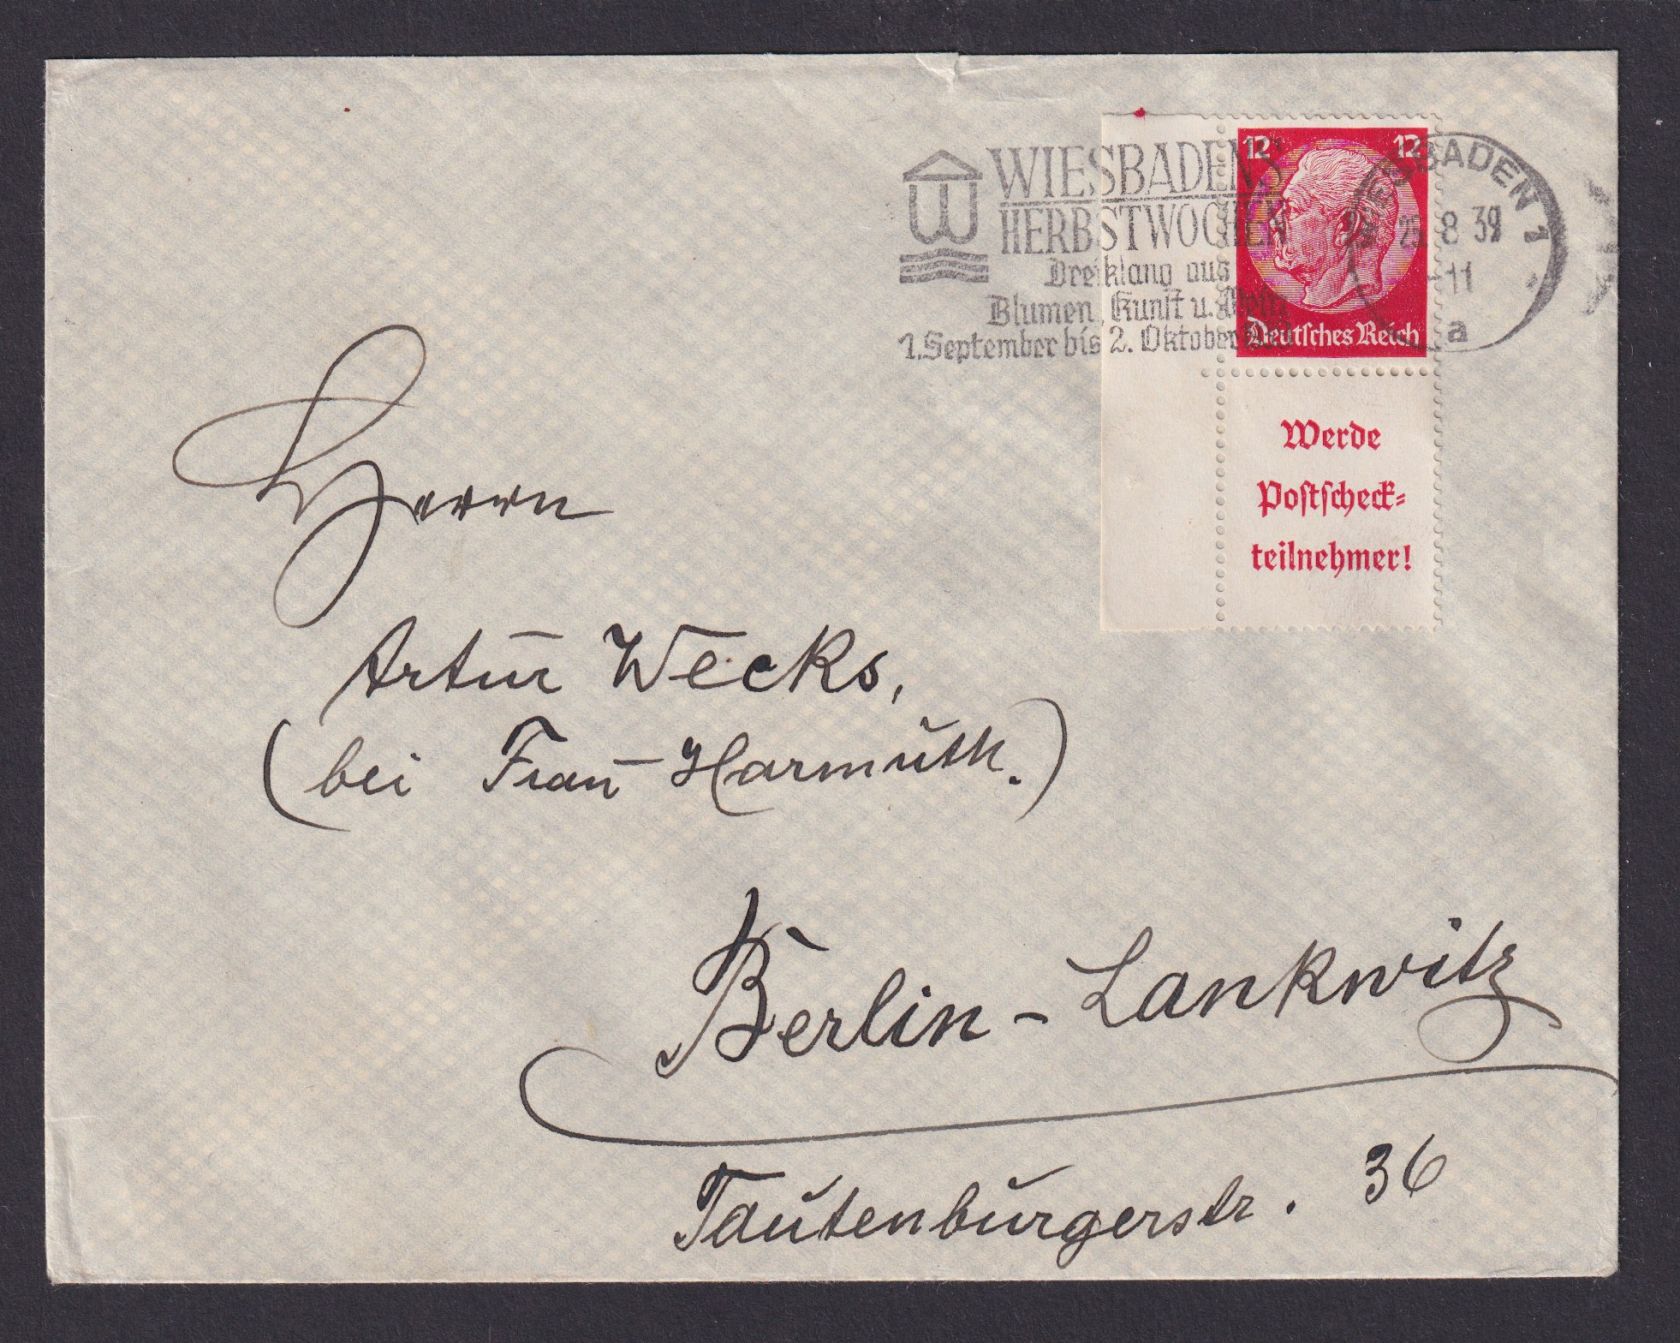 WIESBADENS
HERBSTWOCHEN
Dreiklang aus
Blumen, Kunst u. Wein
1. September bis 2. Oktober
12 12
Deutsches Reich
WIESBADEN 1
8 39
-11
a
Werde
Postscheck=
teilnehmer!
Herrn
Artur Wecks,
(bei Frau Harmuth.)
Berlin-Lankwitz
Tautenburgerstr. 36